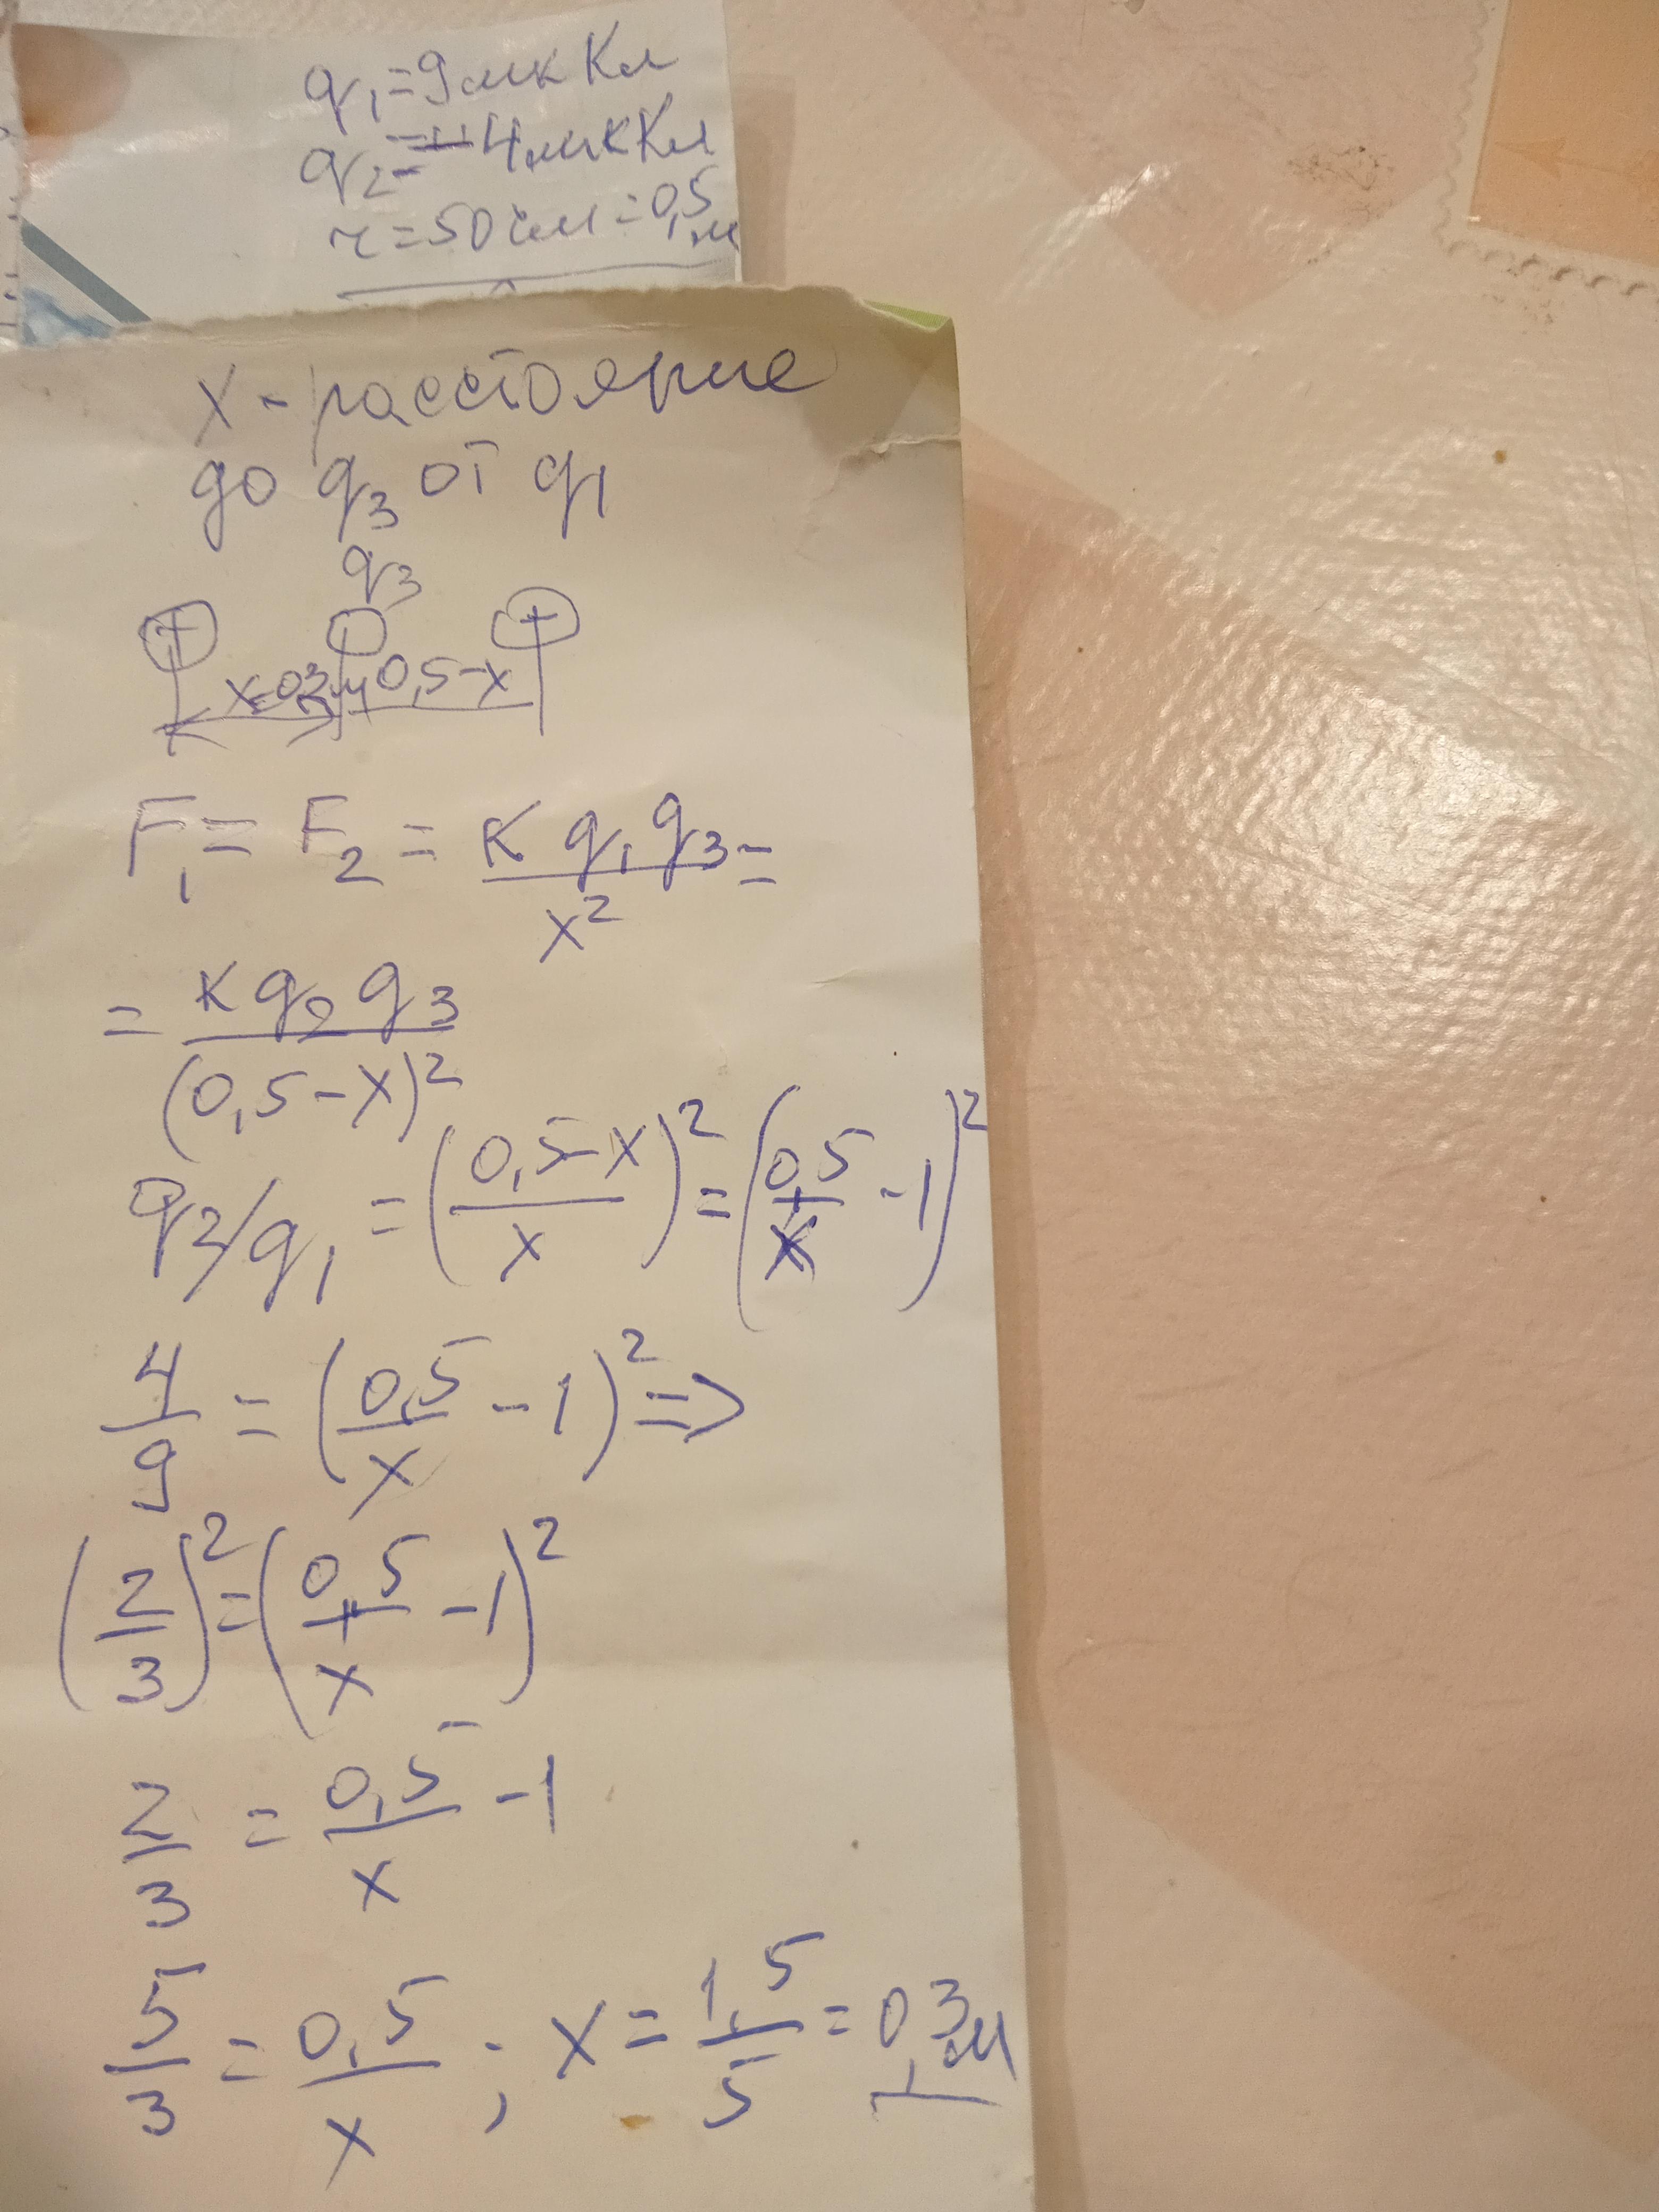 q₁=9мкКл
q₂=4мкКл
r=50см=0,5м
x-расстояние
до q₃ от q₁
q₃
+ +
x=0,3м 0,5-x
F₁=F₂=Kq₁q₃/x²=
=Kq₂q₃/(0,5-x)²
q₂/q₁=((0,5-x)/x)²=(0,5/x-1)²
4/9=(0,5/x-1)²⇒
(2/3)²=(0,5/x-1)²
2/3=0,5/x-1
5/3=0,5/x; x=1,5/5=0,3м